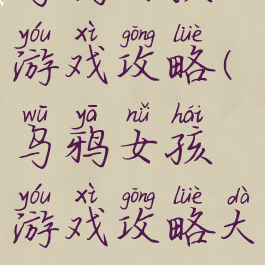 yóu xì gōng lüè
游戏攻略(
wū yā nǚ hái
乌鸦女孩
yóu xì gōng lüè dà
游戏攻略大